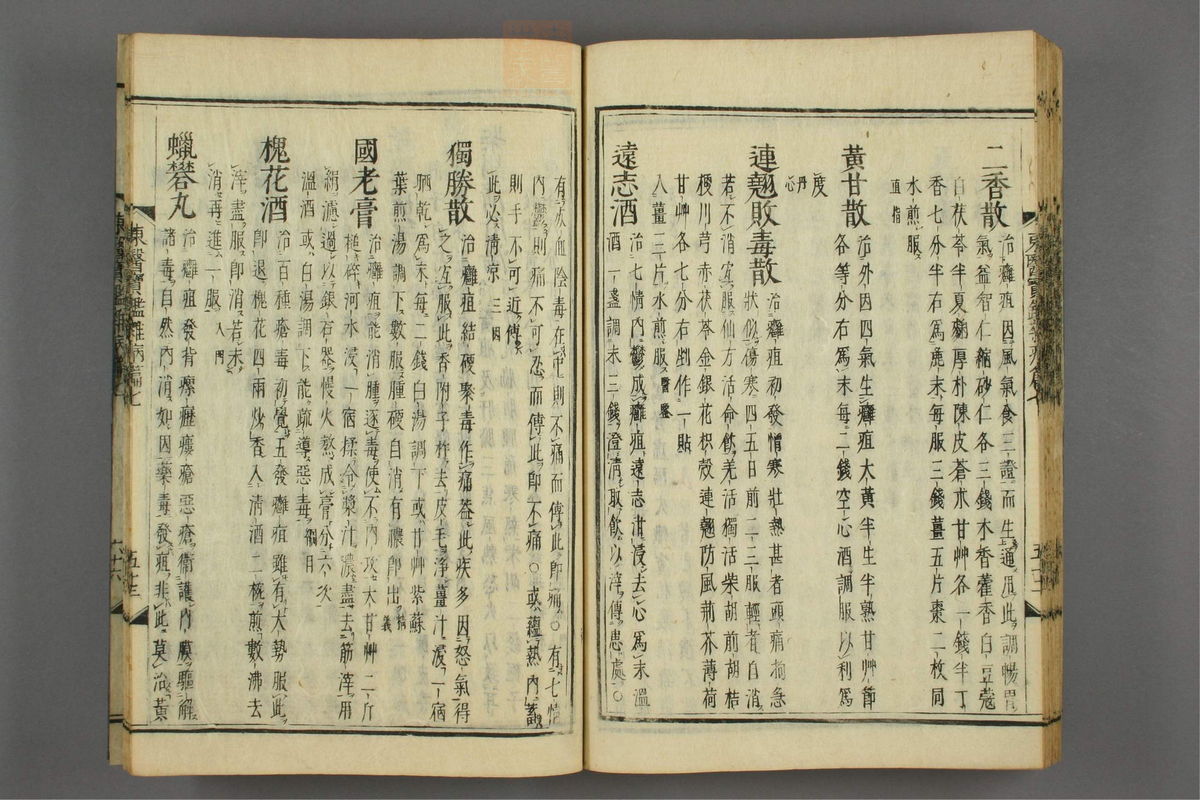 二香散 治癰疽因風氣食三證而生通用此調暢胃
氣益智仁縮砂仁各三錢木香藿香白豆蔲
白茯苓半夏麴厚朴陳皮蒼朮甘艸各一錢半丁
香七分半右爲麁末每服三錢薑五片棗二枚同
水煎服直指
黃甘散 治外因四氣生癰疽大黃半生半熟甘艸節
各等分右爲末每二錢空心酒調服以利爲
度丹心
連翹敗毒散 治癰疽初發憎寒壯熱甚者頭痛拘急
狀似傷寒四五日前二三服輕者自消
若不消宜服仙方活命飮羌活獨活柴胡前胡桔
梗川芎赤茯苓金銀花枳殼連翹防風荊芥薄荷
甘艸各七分右剉作一貼
入薑三片水煎服醫鑒
遠志酒 治七情內鬱成癰疽遠志泔浸去心爲末溫
酒一盞調末三錢澄淸取飮以滓傅患處○
有灰血陰毒在中則不痛而傅此卽痛○有七情
內鬱則痛不可忍而傅此卽不痛○或蘊熱內蓄
則手不可近傅
此必淸凉三因
獨勝散 治癰疽結硬聚毒作痛葢此疾多因怒氣得
之宜服此香附子杵去皮毛淨薑汁浸一宿
晒乾爲末每二錢白湯調下或甘艸紫蘇
葉煎湯調下數服腫硬自消有膿卽出精義
國老膏 治癰疽能消腫逐毒使不內攻大甘艸二斤
槌碎河水浸一宿揉令漿汁濃盡去筋滓用
絹濾過以銀石器慢火熬成膏分六次
溫酒或白湯調下能疏導惡毒綱目
槐花酒 治百種瘡毒初覺五發癰疽雖有大勢服此
卽退槐花四兩炒香入淸酒二椀煎數沸去
滓盡服卽消若未
消再進一服入門
蠟礬丸 治癰疽發背瘰癧瘻瘡惡瘡衛護內膜驅解
諸毒自然內消如因藥毒發疽非此莫治黃
東醫寶鑑雜病篇七